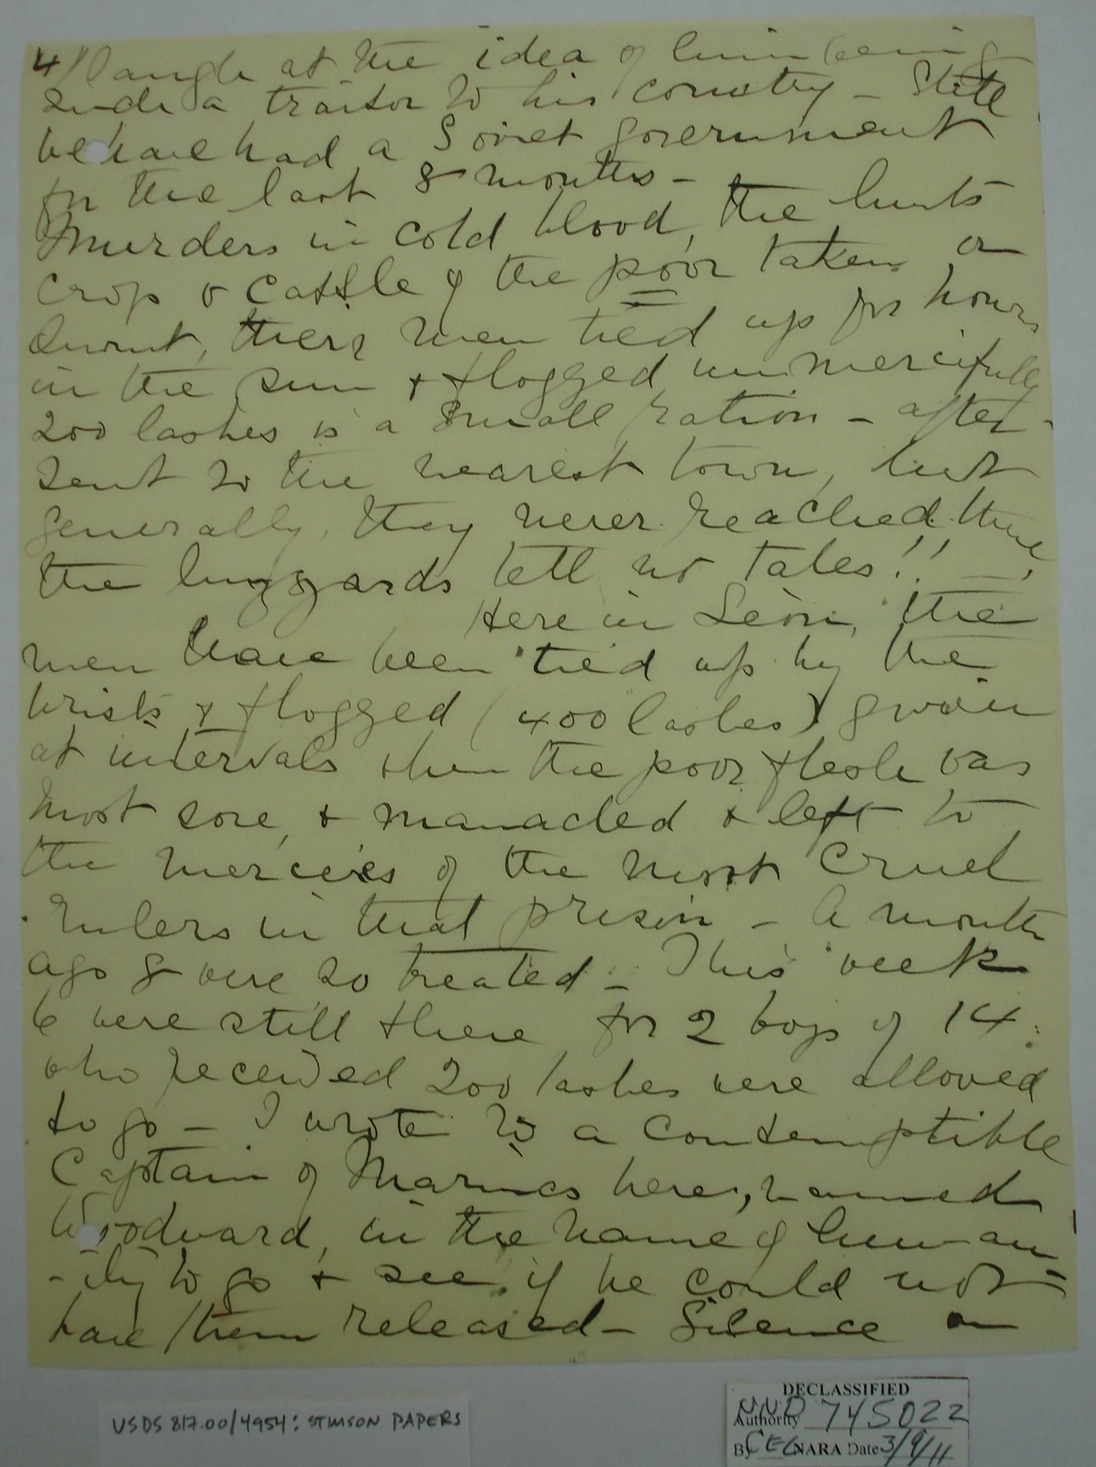 4/ laugh at the idea of him being
such a traitor to his country – Still
we have had a Soviet government
for the last 8 months –
Murders in cold blood, the huts
crops & cattle of the poor taken or
burnt, their men tied up for hours
in the sun & flogged unmercifully
200 lashes is a small ration – after-
sent to the nearest town, but
generally, they never reached there,
the buzzards tell no tales!! –
Here in León, the
men have been tied up by the
wrists & flogged (400 lashes) given
at intervals when the poor flesh was
most sore, & manacled & left to
the mercies of the most cruel
rulers in that prison – A month
ago 8 were so treated – This week
6 were still there for 2 boys of 14
who received 200 lashes were allowed
to go – I wrote to a contemptible
Captain of Marines here, named
Woodward, in the name of human-
-ity to go & see if he could not
have them released – Silence
USDS 817.00/4954: STIMSON PAPERS
DECLASSIFIED
Authority NND 745022
By CEG NARA Date 3/9/11